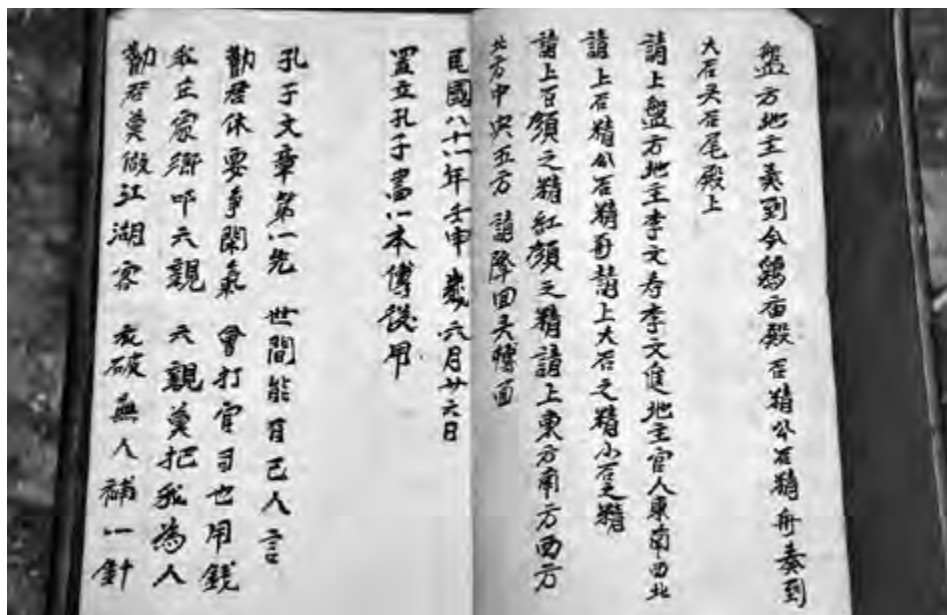 盤方地主奏到今鷄庙殿石精公石精母奏到
大石夭石尾殿上
請上盤方地主李文寿李文進地主官人東南西北
請上石精公石精母請上大石之精小石之精
請上百顔之精紅顔之精請上東方南方西方
北方中央五方 請降回夭轉面
民國八十一年壬申歲六月廿六日
置立孔子書一本傳後用
孔子文章第一先 世間能有已人言
勸君休要争閑氣 會打官司也用錢
我在家鄉叫六親 六親莫把我為人
勸君莫做江湖客 衣破無人補一針